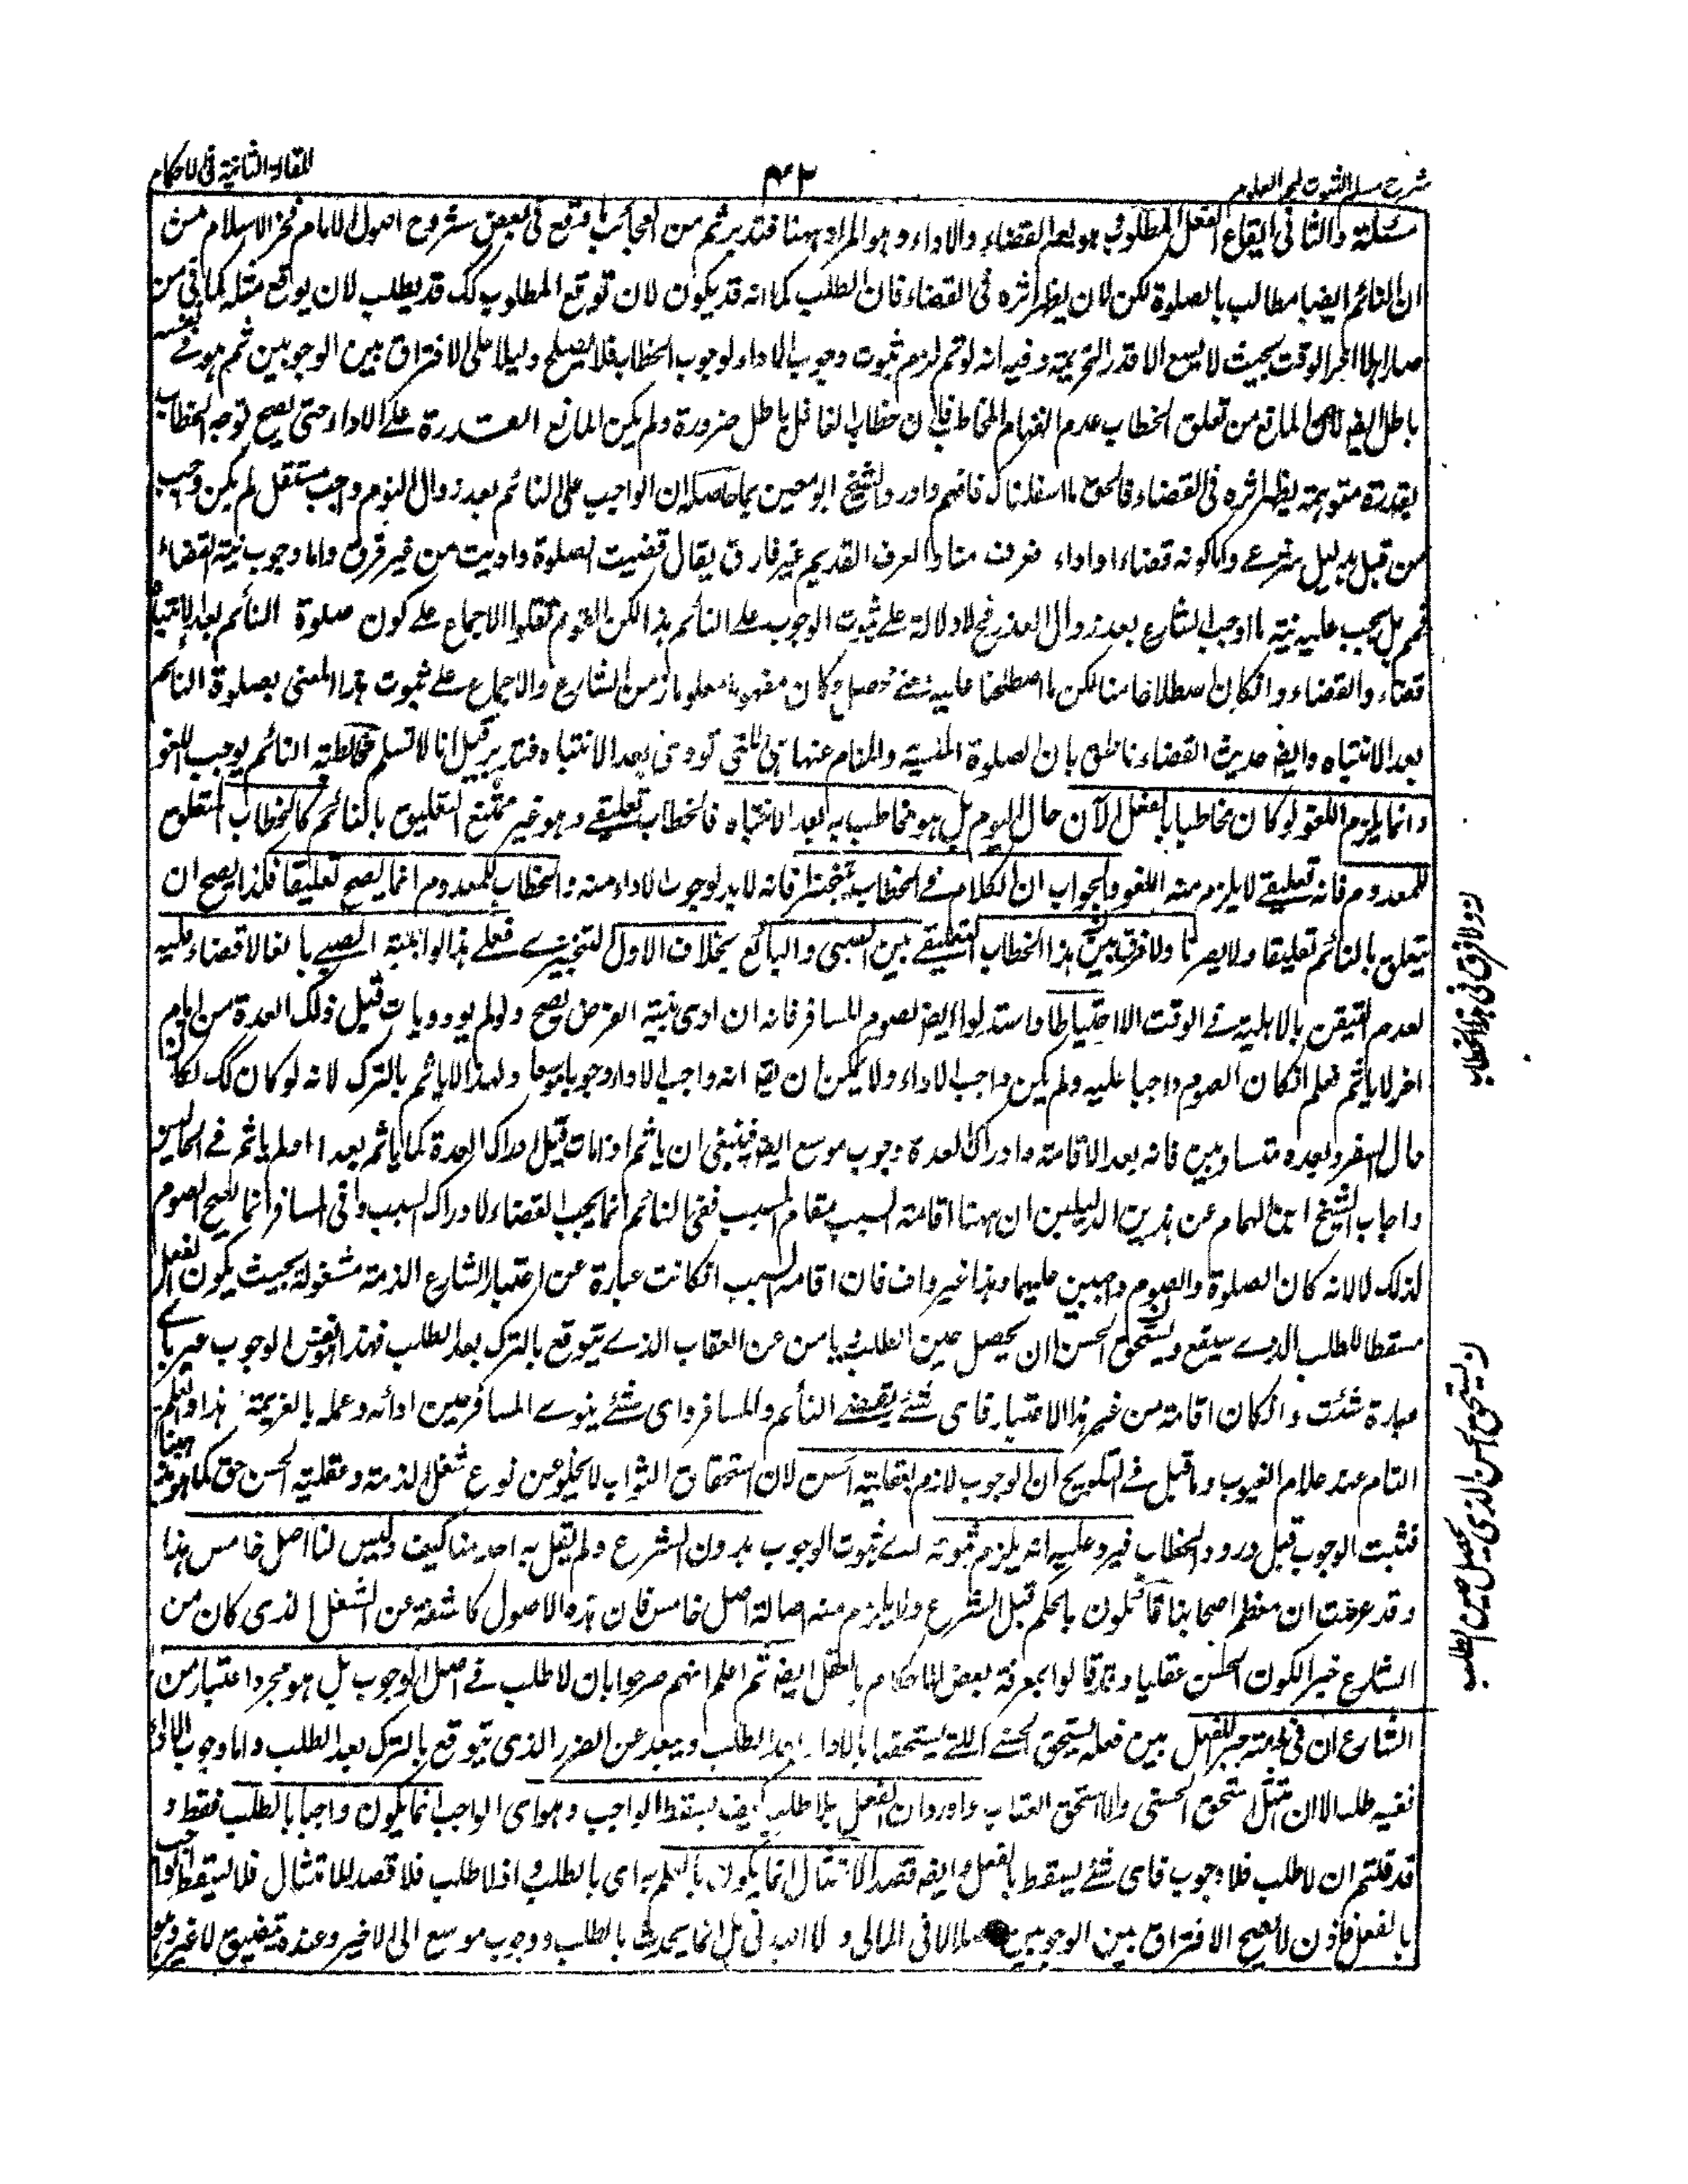 شرح مسلم الثبوت لبحر العلوم
٤٢
المقالة الثانية فى الاحكام
مسئلة والثانى ايقاع الفعل المطلوب هو يعم القضاء والاداء وهو المراد ههنا فتدبر ثم من العجائب ما وقع فى بعض شروح اصول الامام فخر الاسلام من
ان النائم ايضا مطالب بالصلوة لكن لان يظهر اثره فى القضاء فان الطلب كما انه قد يكون لان توقع المطلوب كك قد يطلب لان يوقع مثله كما فى من
صار اهلا اخر الوقت بحيث لا يسع الا قدر التحريمة وفيه انه لو تم لزم ثبوت وجوب الاداء لوجوب الخطاب فلا يصلح دليلا على الافتراق بين الوجوبين ثم هو فى نفسه
باطل ايضا لان المانع من تعلق الخطاب عدم انفهام المخاطب فان خطاب الغافل باطل ضرورة ولم يكن المانع القدرة على الاداء حتى يصح توجه الخطاب
بقدرة متوهمة يظهر اثره فى القضاء فالحق ما اسفلناك فافهم واورد الشيخ ابو معين بما حاصله ان الواجب على النائم بعد زوال النوم واجب مستقل لم يكن وجب
من قبل بدليل شرعى واما كونه قضاء او اداء فعرف منا والعرف القديم غير فارق يقال قضيت الصلوة واديت من غير فرق واما وجوب نية القضاء
فمم بل يجب عليه نية ما اوجب الشارع بعد زوال العذر فح لا دلالة على ثبوت الوجوب على النائم هذا لكن القوم نقلوا الاجماع على كون صلوة النائم بعد الانتباه
قضاء والقضاء وان كان اصطلاحا منا لكن ما اصطلحنا عليه معنى محصل وكان مفهوما معلوما زمن الشارع والاجماع على ثبوت هذا المعنى بصلوة النائم
بعد الانتباه وايضا حديث القضاء ناطق بان الصلوة المنسية والمنام عنها هى التى تودى بعد الانتباه فتدبر قيل انا لا نسلم مخاطبة النائم يوجب اللغو
وانما يلزم اللغو لو كان مخاطبا بالفعل الآن حال النوم بل هو مخاطب به بعد الانتباه فالخطاب تعليقى وهو غير ممتنع التعليق بالنائم كالخطاب المتعلق
للمعدوم فانه تعليقى لا يلزم منه اللغو والجواب ان الكلام فى الخطاب تنجيزا فانه لابد لوجوب الاداء منه والخطاب للمعدوم انما يصح تعليقا فلذا يصح ان
يتعلق بالنائم تعليقا ولا يضرنا ولا فرق بين هذا الخطاب التعليقى بين الصبى والبالغ بخلاف الاول التنجيزى فعلى هذا لو انتبه الصبى بالغا لا قضاء عليه
لعدم التيقن بالاهلية فى الوقت الا احتياطا واستدلوا ايضا بصوم المسافر فانه ان ادى بنية الفرض يصح ولو لم يود ومات قبل ذلك العدة من ايام
اخر لا ياثم فعلم ان كان الصوم واجبا عليه ولم يكن واجب الاداء ولا يمكن ان يقال انه واجب الاداء وجوبا موسعا ولهذا لا ياثم بالترك لانه لو كان كك لكان
حال السفر وبعده متساويين فانه بعد الاقامة وادراك العدة وجوب موسع ايضا فينبغى ان ياثم اذا مات قبل ادراك العدة كما ياثم بعدها او لم ياثم فى الحالين
واجاب الشيخ ابن الهمام عن هذين الدليلين ان ههنا اقامة السبب مقام المسبب ففى النائم انما يجب القضاء لادراك السبب وفى المسافر انما يصح الصوم
لذلك لا لانه كان الصلوة والصوم واجبين عليهما وهذا غير واف فان اقامة السبب ان كانت عبارة عن اعتبار الشارع الذمة مشغولة بحيث يكون الفعل
مسقطا للطلب الذى سيقع ويستحق الحسن ان يحصل حين الطلب يامن عن العقاب الذى يتوقع بالترك بعد الطلب فهذا هو نفس الوجوب عبر باى
عبارة شئت وان كان اقامته من غير هذا الاعتبار فاى شئ يقضى النائم والمسافر واى شئ ينوى المسافر حين ادائه وعمله بالعزيمة هذا والعلم
التام عند علام الغيوب وما قيل فى التلويح ان الوجوب لازم لعقلية الحسن لان استحقاق الثواب لا يخلو عن نوع شغل الذمة وعقلية الحسن حق كما هو مذهبنا
فثبت الوجوب قبل ورود الخطاب فيرد عليه انه يلزم ثبوته اى ثبوت الوجوب بدون الشرع ولم يقل به احد منا كيف وليس لنا اصل خامس هذا
وقد عرفت ان معظم اصحابنا قائلون بالحكم قبل الشرع ولا يلزم منه اصالة اصل خامس فان هذه الاصول كاشفة عن الشغل الذى كان من
الشارع خبر الكون الحسن عقليا وقد قالوا بمعرفة بعض الاحكام بالعقل ايضا ثم اعلم انهم صرحوا بان لا طلب فى اصل الوجوب بل هو مجرد اعتبار من
الشارع ان فى ذمته جبرا للفعل حين فعله يستحق الحسنى التى يستحقها بالاداء بعد الطلب ويبعد عن الضرر الذى يتوقع بالترك بعد الطلب واما وجوب الاداء
ففيه طلب الا ان امتثل استحق الحسنى والا استحق العقاب واورد ان الفعل بلا طلب كيف يسقط الواجب وهو اى الواجب انما يكون واجبا بالطلب فقط و
قد قلتم ان لا طلب فلا وجوب فاى شئ يسقط بالفعل وايضا قصد الامتثال انما يكون بالعلم به اى بالطلب واذ لا طلب فلا قصد للامتثال فلا يسقط الواجب
بالفعل فاذن لا يصح الافتراق بين الوجوبين اصلا لا فى المالى ولا البدنى بل انما يحدث بالطلب ووجوب موسع الى الاخير وعنده تضييق لا غير وهو
ن ولا فرق فى هذا الخطاب
ن يستحق الحسن الذى يحصل حين الطلب